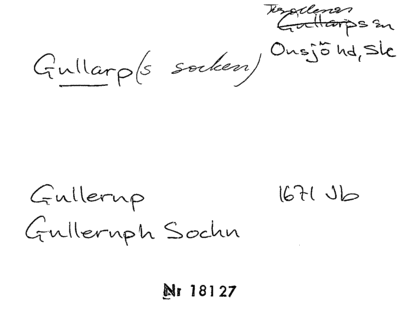 Trollenäs
Gullarps sn
Gullarp(s socken) Onsjö hd, Sk
Gullerup 1671 Jb
Gulleruph Sochn
Nr 18127